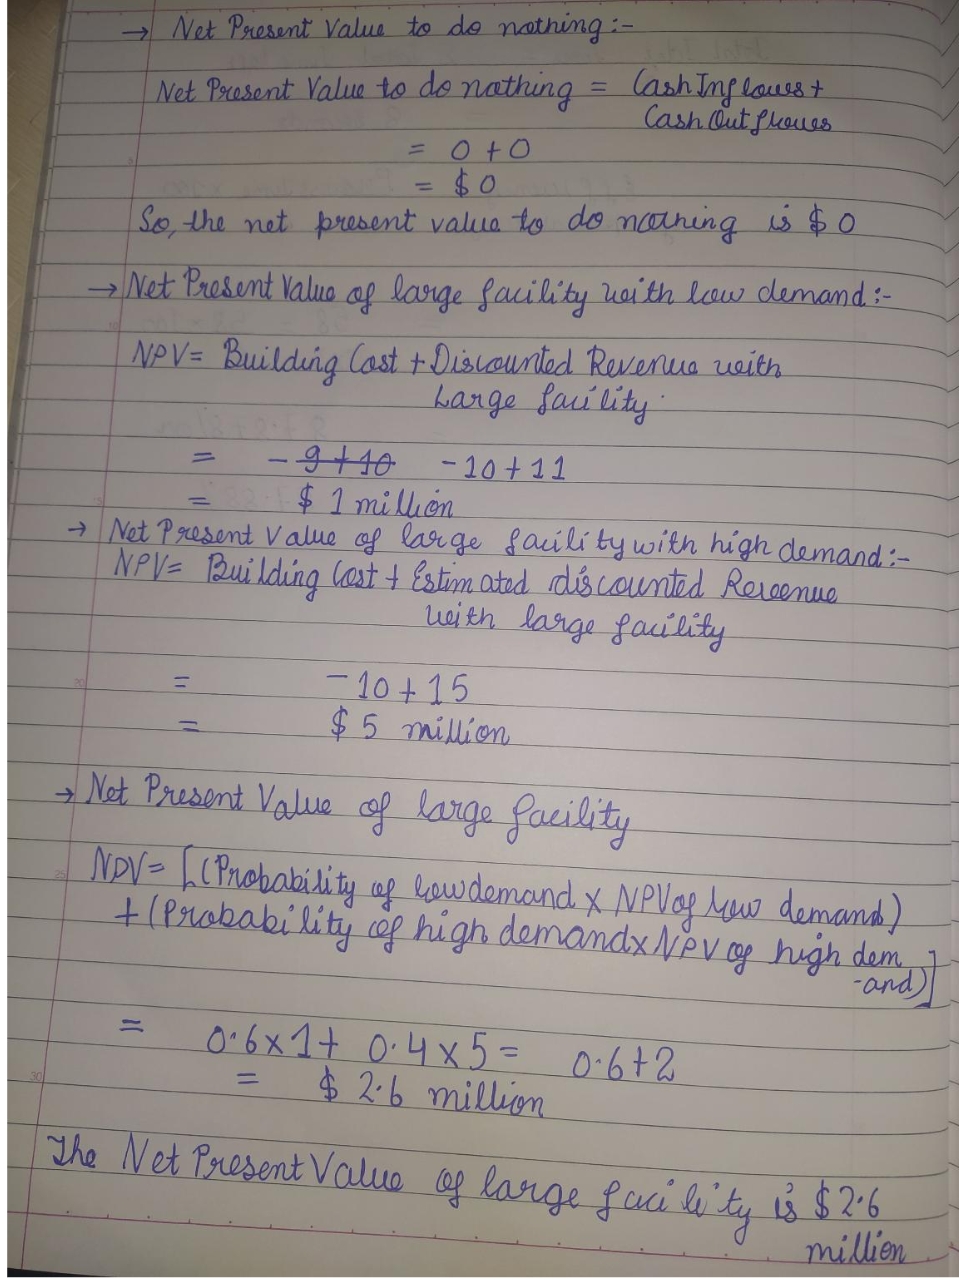 → Net Present Value to do nothing:-
Net Present Value to do nothing = Cash Inflows +
Cash Outflows
= 0 + 0
= $ 0
So, the net present value to do nothing is $ 0
→ Net Present Value of large facility with low demand:-
NPV = Building Cost + Discounted Revenue with
Large facility.
= - 9 + 10 -10 + 11
= $ 1 million
→ Net Present Value of large facility with high demand:-
NPV = Building Cost + Estimated discounted Revenue
with large facility
= -10 + 15
= $ 5 million
→ Net Present Value of large facility
NPV = [(Probability of low demand x NPV of low demand)
+ (Probability of high demand x NPV of high dem
-and)]
= 0.6 x 1 + 0.4 x 5 = 0.6 + 2
= $ 2.6 million
The Net Present Value of large facility is $ 2.6
million